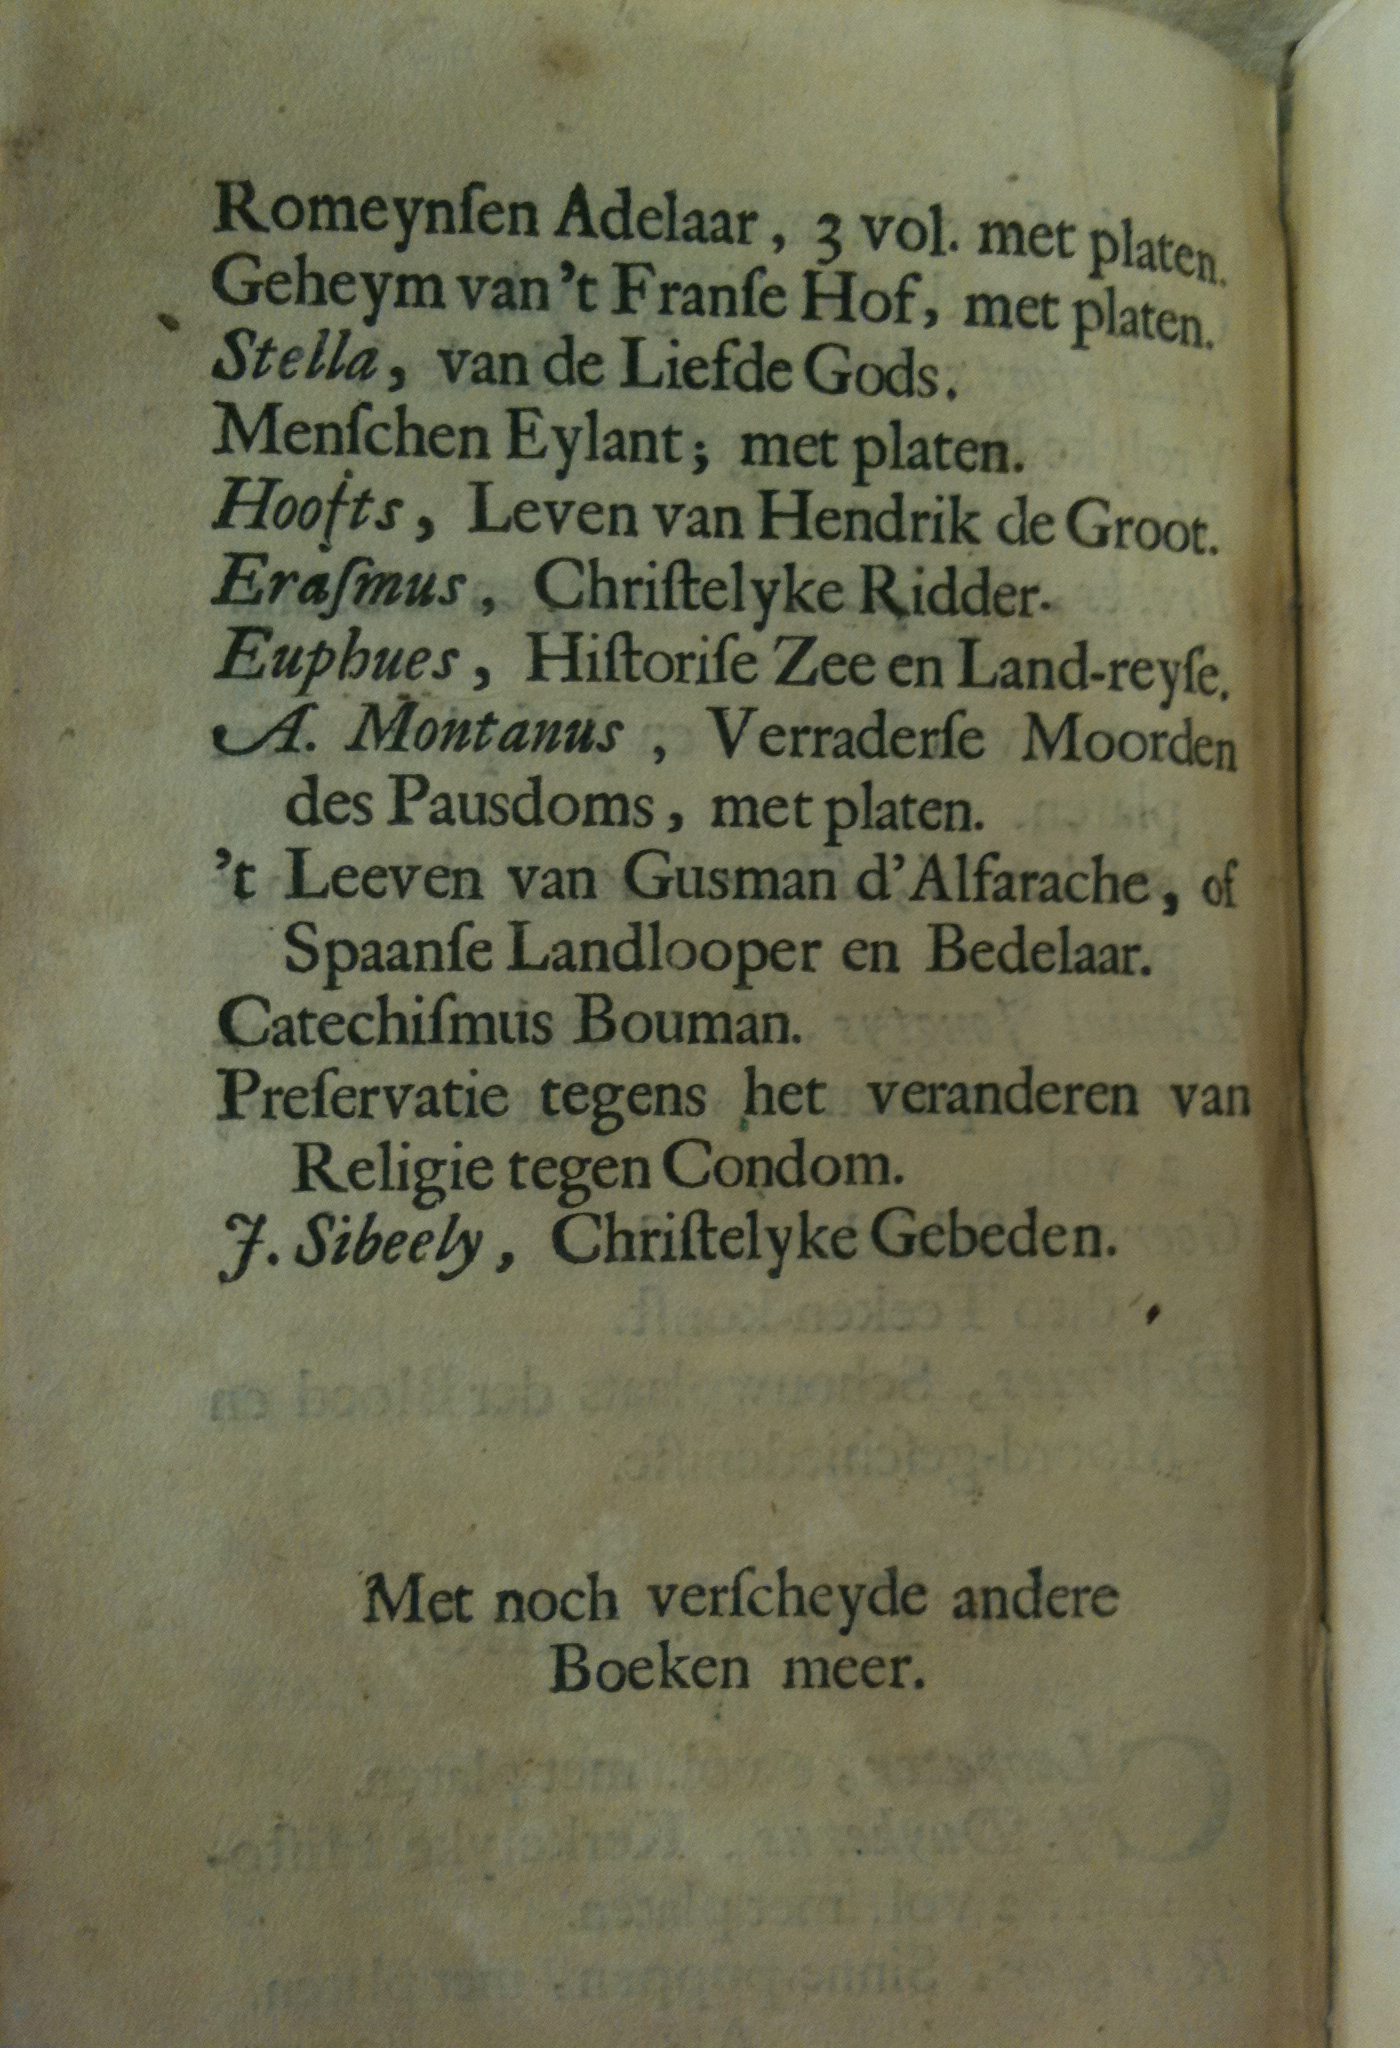 Romeynſen Adelaar, 3 vol. met platen.
Geheym van 't Franſe Hof, met platen.
Stella, van de Liefde Gods.
Menſchen Eylant; met platen.
Hoofts, Leven van Hendrik de Groot.
Eraſmus, Chriſtelyke Ridder.
Euphues, Hiſtoriſe Zee en Land-reyſe.
A. Montanus, Verraderſe Moorden
des Pausdoms, met platen.
't Leeven van Gusman d'Alfarache, of
Spaanſe Landlooper en Bedelaar.
Catechiſmus Bouman.
Preſervatie tegens het veranderen van
Religie tegen Condom.
J. Sibeely, Chriſtelyke Gebeden.
Met noch verſcheyde andere
Boeken meer.